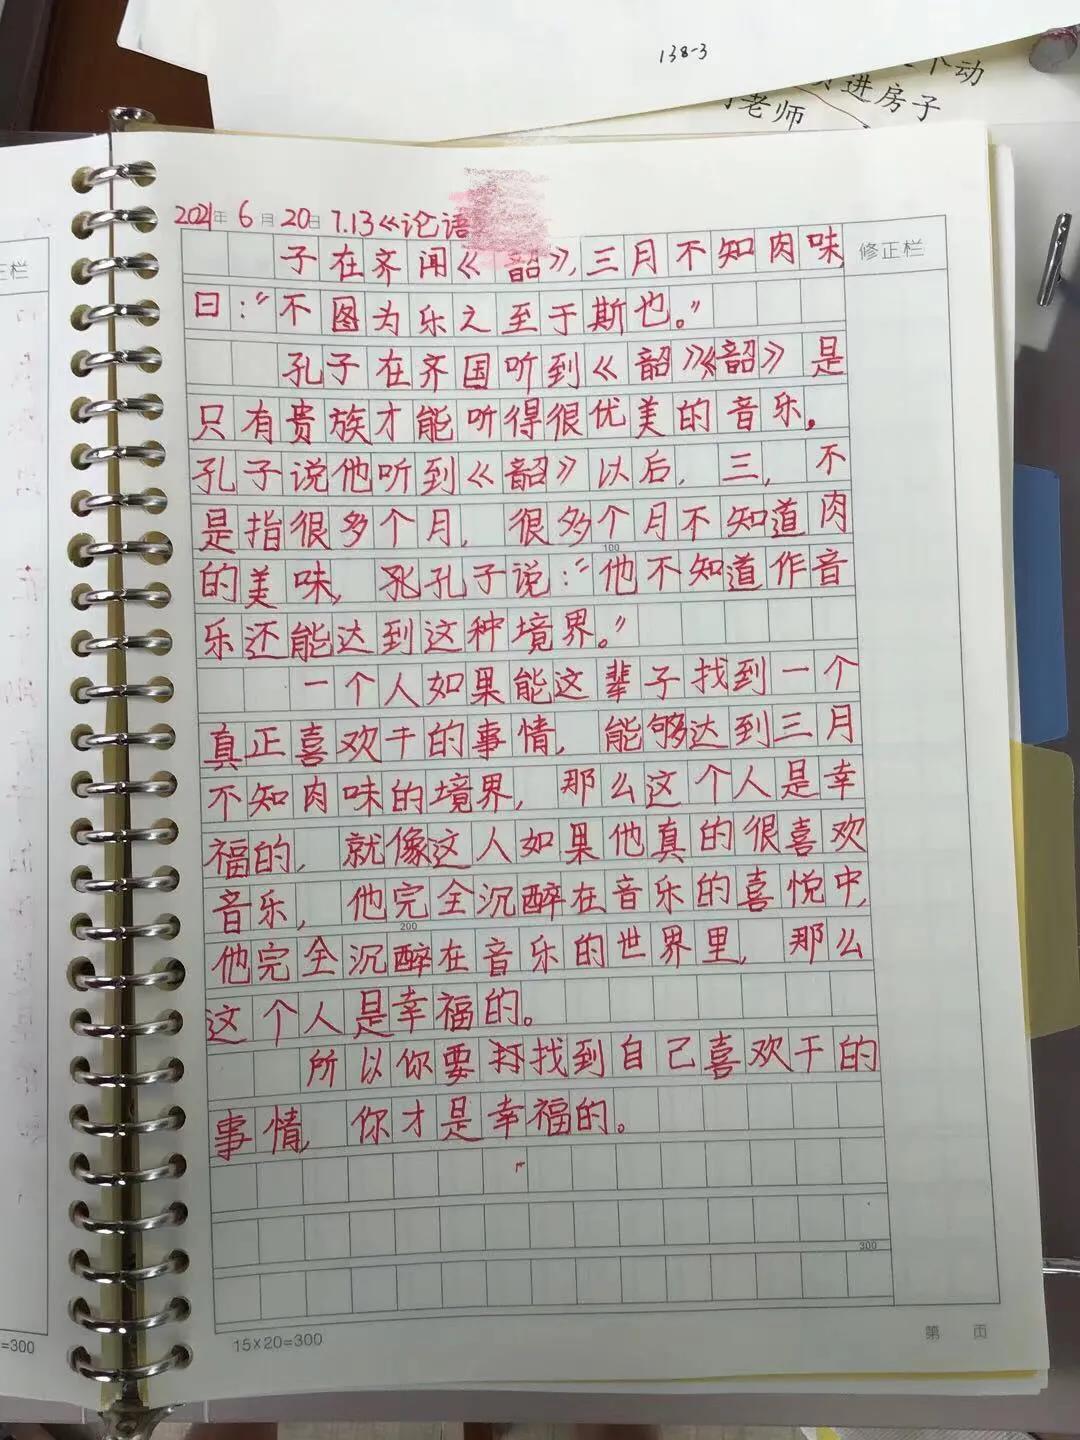 138-3
个动
进房子
老师
2021年 6月 20日 7.13《论语
子在齐闻《韶》,三月不知肉味,
修正栏
曰:“不图为乐之至于斯也。”
孔子在齐国听到《韶》《韶》是
只有贵族才能听得很优美的音乐。
孔子说他听到《韶》以后,三,不
是指很多个月,很多个月不知道肉
的美味,孔子说:“他不知道作音
100
乐还能达到这种境界。”
一个人如果能这辈子找到一个
真正喜欢干的事情,能够达到三月
不知肉味的境界,那么这个人是幸
福的,就像这人如果他真的很喜欢
音乐,他完全沉醉在音乐的喜悦中,
200
他完全沉醉在音乐的世界里,那么
这个人是幸福的。
所以你要找到自己喜欢干的
事情,你才是幸福的。
300
15×20=300
第 页
正栏
=300